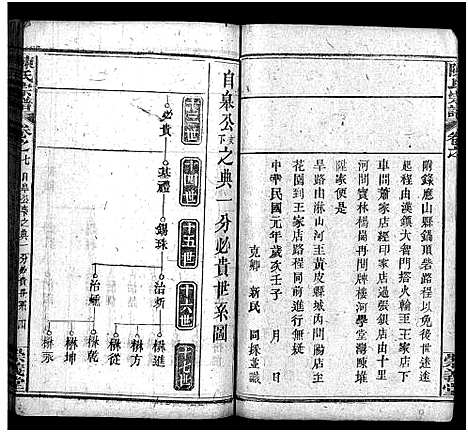 陳氏宗譜
卷之七
附錄應山縣鷂頂砦路程以免後世迷途
起程由漢鎮大智門搭火輪至王家店下
車問蕭家店經印家店過張鎮店由十里
河問賓林楊問再問牌樓河學堂灣陳堆
陞家便是
旱路由淋山河至黃皮縣城內問陽店至
花園到王家店路程同前進行無疑
中華民國元年歲次壬子 月 日
克鄉 新民 同採並識
自臬公文下之典一分必貴世系圖
十三世
十四世
十五世
十六世
十七世
必貴
基禮
錫珠
治新
楙進
楙從
治經
楙乾
楙坤
楙示
陳氏宗譜
卷之七
自臬公文下之典一分必貴世系
四